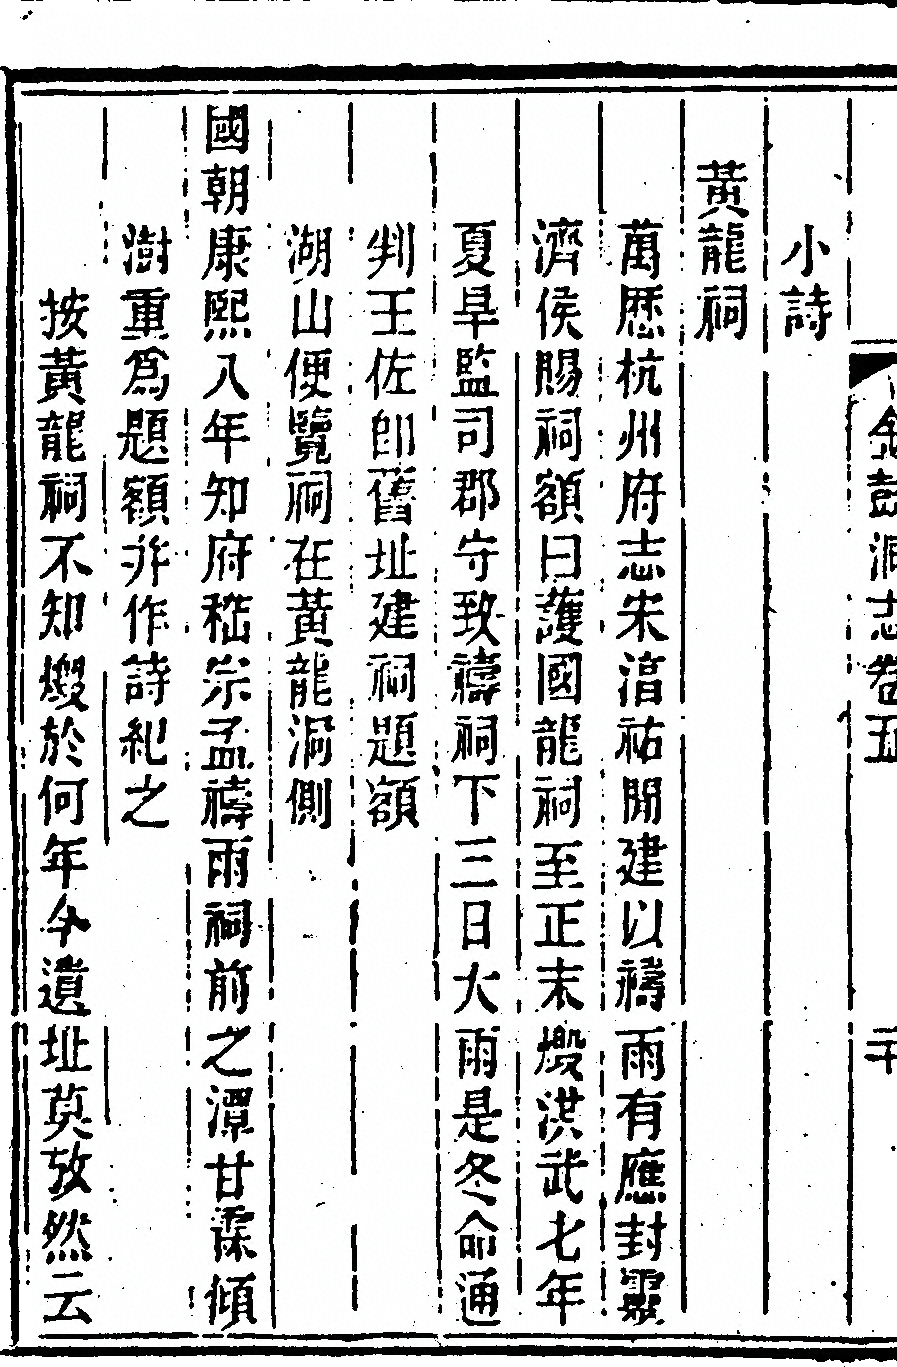 金鼓洞志卷五
二十
小詩
黃龍祠
萬歷杭州府志宋淳祐間建以禱雨有應封靈
濟侯賜祠額曰護國龍祠至正末燬洪武七年
夏旱監司郡守致禱祠下三日大雨是冬命通
判王佐卽舊址建祠題額
湖山便覽祠在黃龍洞側
國朝康熙八年知府嵇宗孟禱雨祠前之潭甘霂傾
澍重爲題額并作詩紀之
按黃龍祠不知燬於何年今遺址莫攷然云